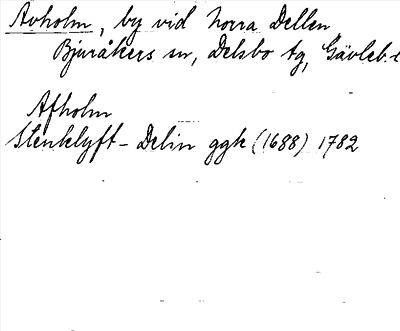 Avholm, by vid norra Dellen
Bjuråkers sn, Delsbo tg, Gävleb. l
Afholm
Stenklyft - Delin ggk (1688) 1782